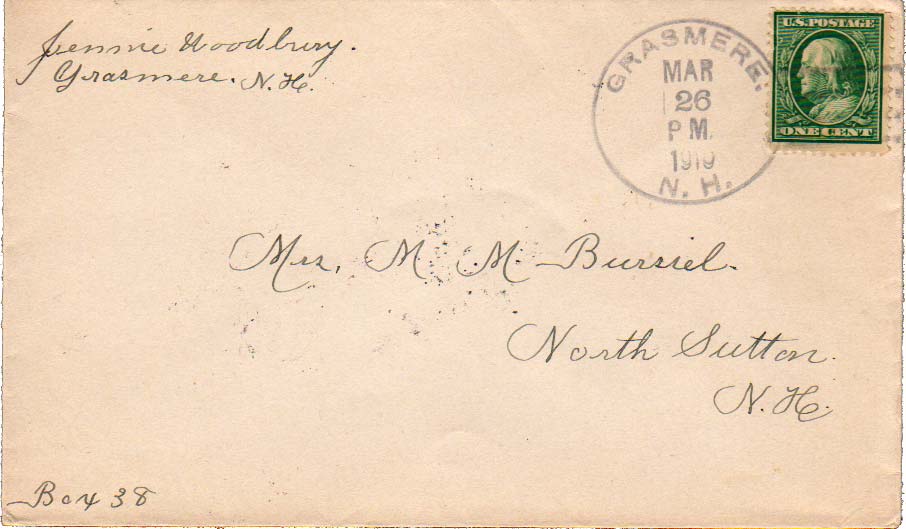 Jennie Woodbury.
Grasmere. N.H.
GRASMERE.
MAR
26
P M.
1910
N. H.
U.S. POSTAGE
ONE CENT
Mrs. M. M. Bursiel.
North Sutton.
N.H.
Box 38